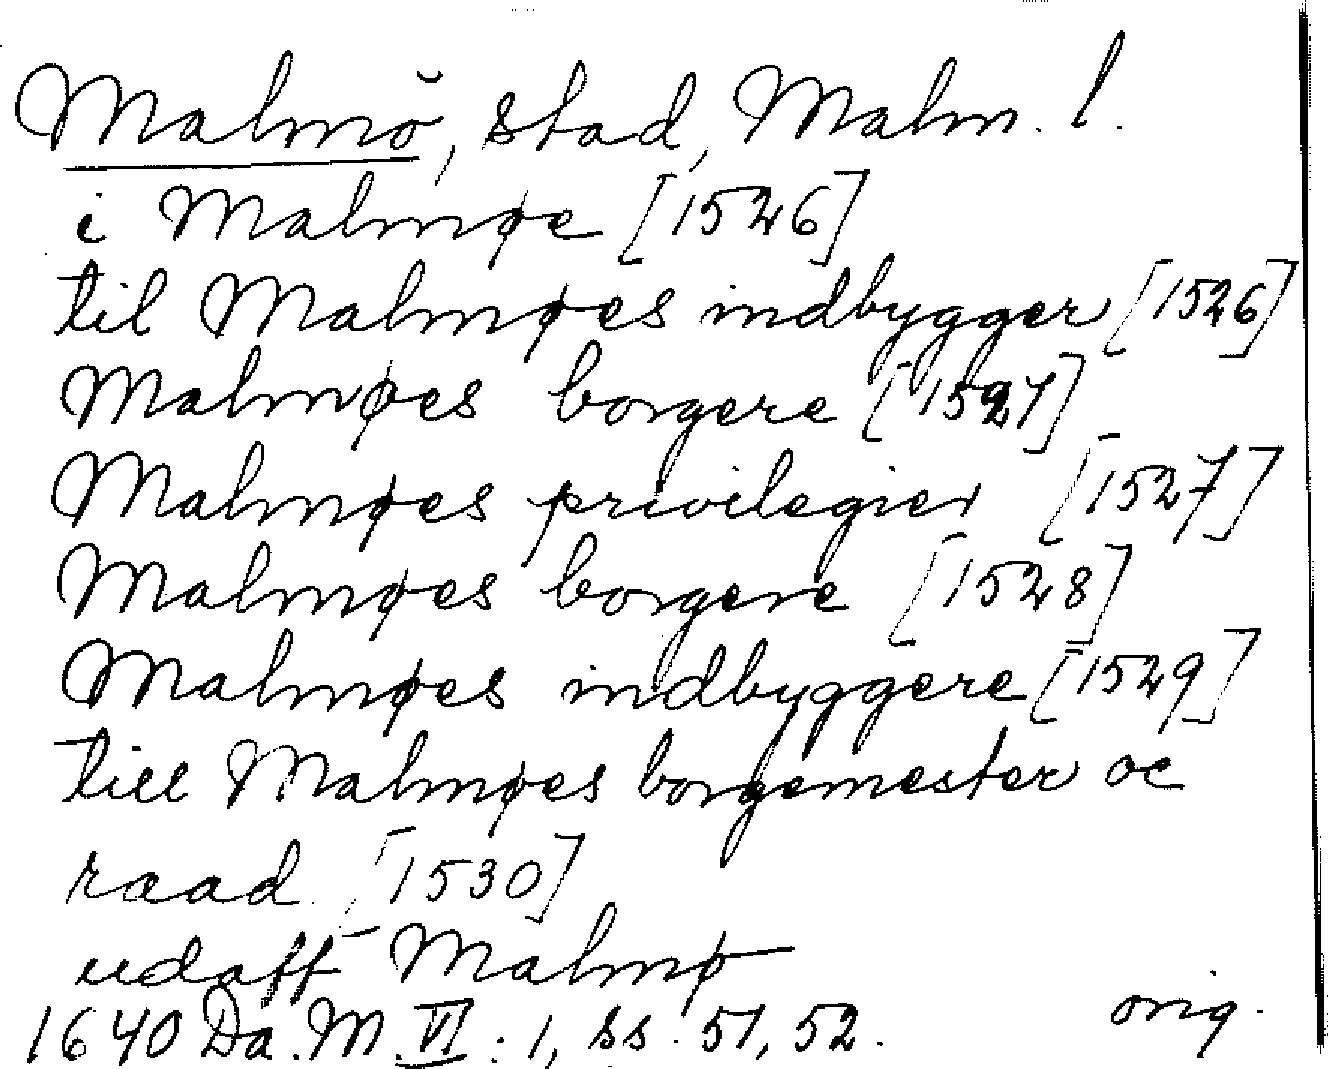 Malmö, stad, Malm. l.
i Malmøe [1526]
til Malmøes indbygger [1526]
Malmøes borgere [1527]
Malmøes privilegier [1527]
Malmøes borgere [1528]
Malmøes indbyggere [1529]
till Malmøes borgemester oc
raad [1530]
udaff Malmø
1640 Da. M. VI : 1, ss. 51, 52. orig.